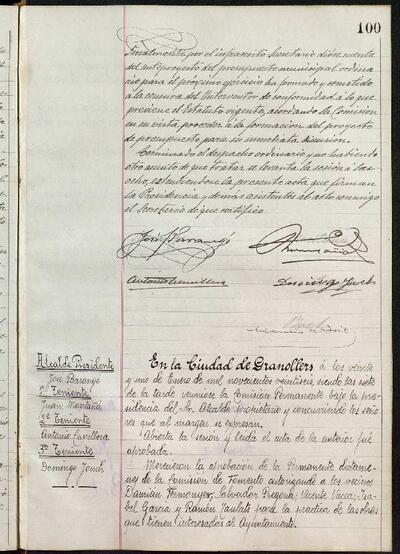 100
Finalmente por el infrascrito Secretario dióse cuenta
del anteproyecto del presupuesto municipal ordina
rio para el próximo ejercicio ha formado y sometido
á la censura del Interventor de conformidad á lo que
previene el Estatuto vigente, acordando la Comisión
en su vista, proceder á la formación del proyecto
de presupuesto para su inmediata discusión.
Terminado el despacho ordinario y no habiendo
otro asunto de que tratar se levantó la sesión á las
ocho, estendiéndose la presente acta que firman
la Presidencia y demás asistentes al acto conmigo
el Secretario de que certifico
José Barangé
Domingo Jonch
Alcalde Presidente
José Barangé
1er Teniente
Juan Montañá
2º Teniente
Antonio Cumellera
3º Teniente
Domingo Jonch
En la Ciudad de Granollers á los veinte
y uno de Enero de mil novecientos veintiseis siendo las siete
de la tarde reuniose la Comisión Permanente bajo la pre
sidencia del Sr. Alcalde propietario y concurriendo los seño
res que al margen se espresan.
Abierta la sesión y leida el acta de la anterior fué
aprobada.
Merecieron la aprobación de la Permanente dictame-
nes de la Comisión de Fomento autorizando á los vecinos
Damián Ferrer, Salvador Riegena, Vicente Vacca, Isa-
bel Garcia y Ramón Jaulats para la practica de las obras
que tienen interesadas al Ayuntamiento.